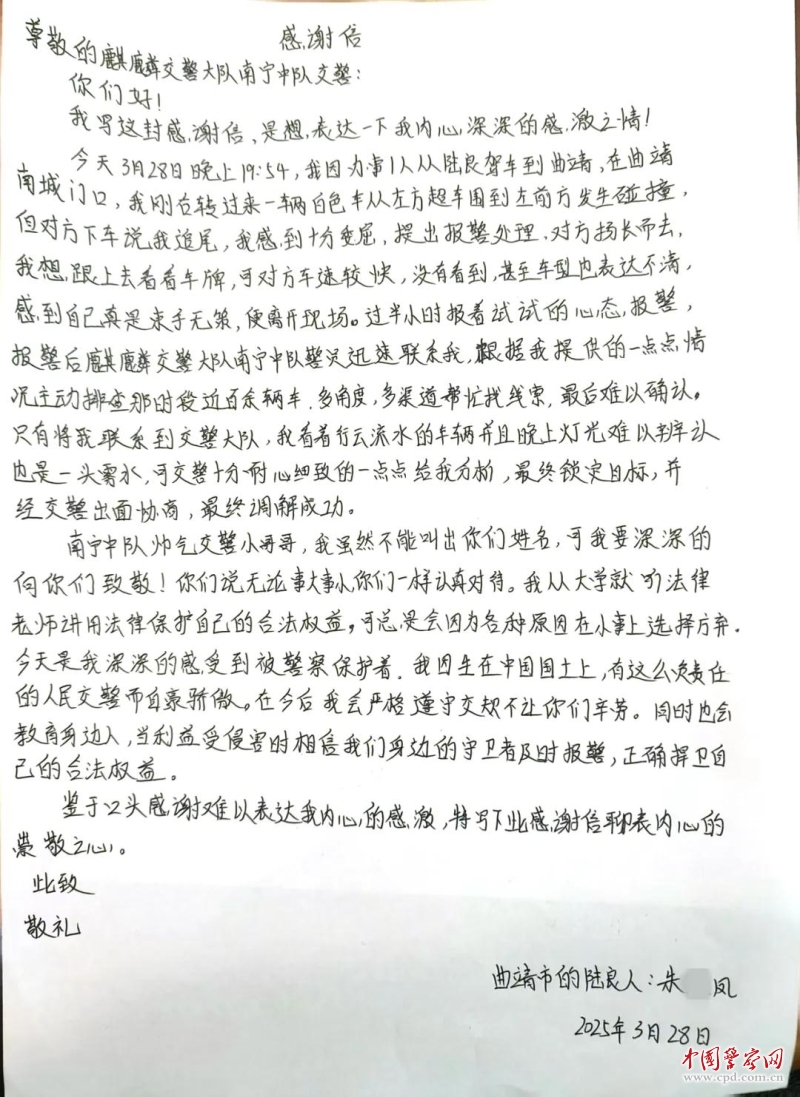 感谢信
尊敬的麒麟交警大队南宁中队交警：
你们好！
我写这封感谢信，是想表达一下我内心深深的感激之情！
今天3月28日晚上19:54，我因办事1人从陆良驾车到曲靖，在曲靖
南城门口，我刚右转过来一辆白色车从左方超车围到左前方发生碰撞，
但对方下车说我追尾，我感到十分委屈，提出报警处理，对方扬长而去，
我想跟上去看看车牌，可对方车速较快，没有看到，甚至车型也表达不清，
感到自己真是束手无策，便离开现场。过半小时报着试试的心态，报警，
报警后麒麟交警大队南宁中队警官迅速联系我，根据我提供的一点点情
况主动排查那时段近百余辆车，多角度，多渠道帮忙找线索，最后难以确认。
只有将我联系到交警大队，我看着行云流水的车辆并且晚上灯光难以辨认
也是一头雾水，可交警十分耐心细致的一点点给我分析，最终锁定目标，并
经交警出面协商，最终调解成功。
南宁中队帅气交警小哥哥，我虽然不能叫出你们姓名，可我要深深的
向你们致敬！你们说无论事大事小你们一样认真对待。我从大学就听法律
老师讲用法律保护自己的合法权益，可总是会因为各种原因在小事上选择放弃.
今天是我深深的感受到被警察保护着，我因生在中国国土上，有这么负责任
的人民交警而自豪骄傲。在今后我会严格遵守交规不让你们辛劳。同时也会
教育身边人，当利益受侵害时相信我们身边的守卫者及时报警，正确捍卫自
己的合法权益。
鉴于口头感谢难以表达我内心的感激，特写下此感谢信聊表内心的
崇敬之心。
此致
敬礼
曲靖市的陆良人：朱 凤
2025年3月28日
中国警察网
www.cpd.com.cn